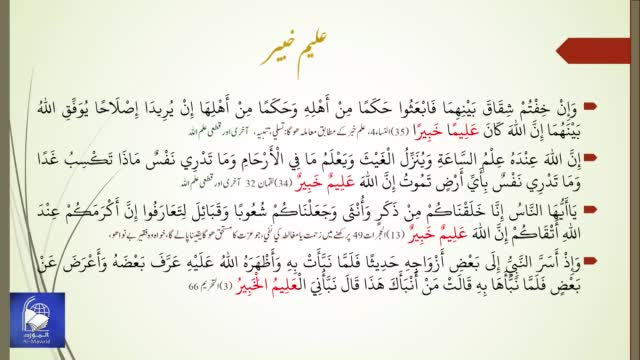 علیم خبیر
وَإِنْ خِفْتُمْ شِقَاقَ بَيْنِهِمَا فَابْعَثُوا حَكَمًا مِنْ أَهْلِهِ وَحَكَمًا مِنْ أَهْلِهَا إِنْ يُرِيدَا إِصْلَاحًا يُوَفِّقِ اللهُ
بَيْنَهُمَا إِنَّ اللهَ كَانَ عَلِيمًا خَبِيرًا (35) النساء4، علم خبر کے مطابق معاملہ ہو گا: تسلی، تنبیہ، آخری اور قطعی علم اللہ
إِنَّ اللهَ عِنْدَهُ عِلْمُ السَّاعَةِ وَيُنَزِّلُ الْغَيْثَ وَيَعْلَمُ مَا فِي الْأَرْحَامِ وَمَا تَدْرِي نَفْسٌ مَاذَا تَكْسِبُ غَدًا
وَمَا تَدْرِي نَفْسٌ بِأَيِّ أَرْضٍ تَمُوتُ إِنَّ اللهَ عَلِيمٌ خَبِيرٌ (34) لقمان 32 آخری اور قطعی علم اللہ
يَاأَيُّهَا النَّاسُ إِنَّا خَلَقْنَاكُمْ مِنْ ذَكَرٍ وَأُنْثَى وَجَعَلْنَاكُمْ شُعُوبًا وَقَبَائِلَ لِتَعَارَفُوا إِنَّ أَكْرَمَكُمْ عِنْدَ
اللهِ أَتْقَاكُمْ إِنَّ اللهَ عَلِيمٌ خَبِيرٌ (13) حجرات 49 پر کھنے میں زحمت یا مغالطہ کی نفی، جو عزت کا مستحق ہو گا یقینا پالے گا، خواہ وہ فقیر بے نوا ہو،
وَإِذْ أَسَرَّ النَّبِيُّ إِلَى بَعْضِ أَزْوَاجِهِ حَدِيثًا فَلَمَّا نَبَّأَتْ بِهِ وَأَظْهَرَهُ اللهُ عَلَيْهِ عَرَّفَ بَعْضَهُ وَأَعْرَضَ عَنْ
بَعْضٍ فَلَمَّا نَبَّأَهَا بِهِ قَالَتْ مَنْ أَنْبَأَكَ هَذَا قَالَ نَبَّأَنِيَ الْعَلِيمُ الْخَبِيرُ (3) التحریم 66
المورد
Al-Mawrid